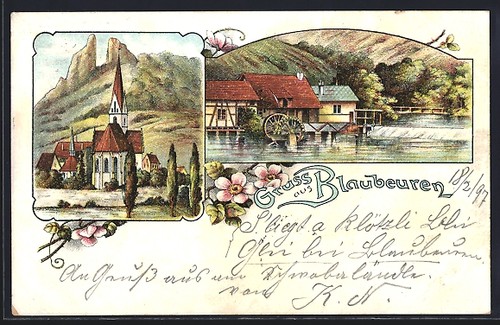 Gruss aus Blaubeuren
18/2/97
S'liegt a klötzli Blei
Glei bei Blaubeuren,
An Gruß aus em Schwobaländle.
von K. N.